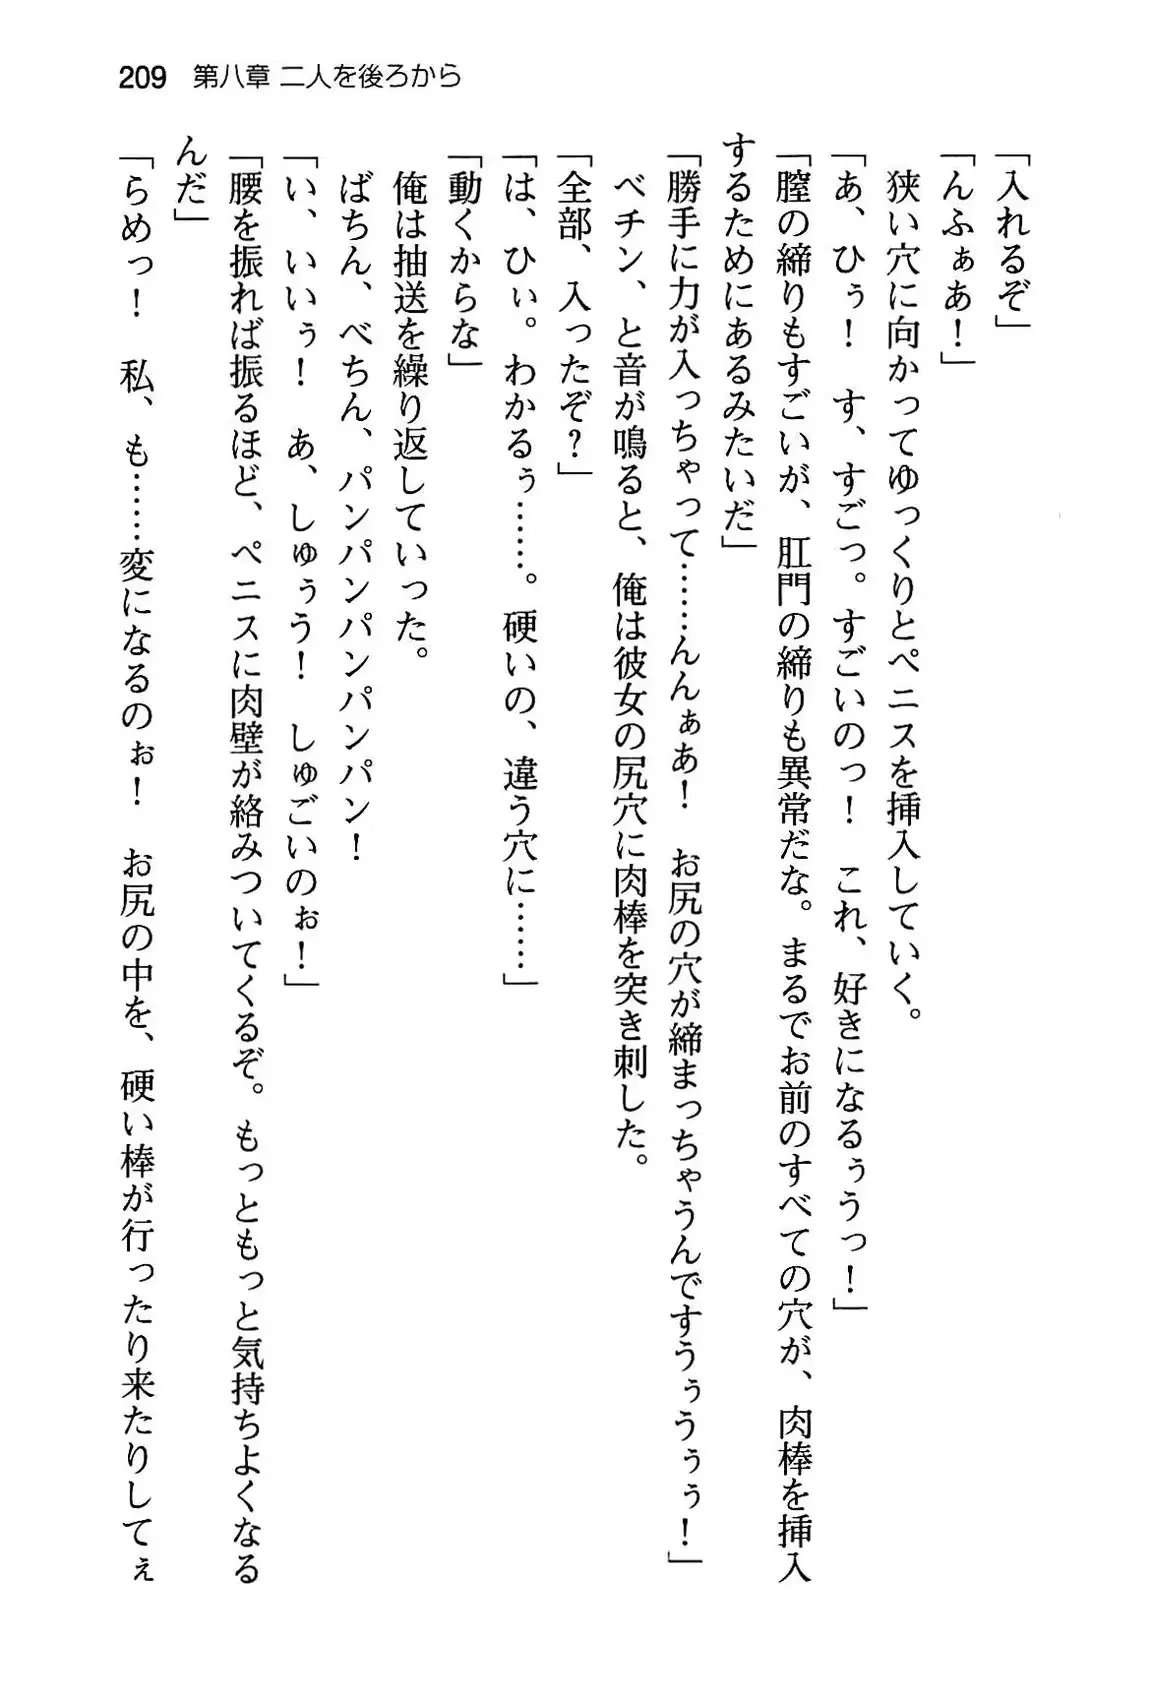 209 第八章 二人を後ろから
「入れるぞ」
「んふぁあ!」
狭い穴に向かってゆっくりとペニスを挿入していく。
「あ、ひぅ! す、すごっ。すごいのっ! これ、好きになるぅうっ!」
「膣の締りもすごいが、肛門の締りも異常だな。まるでお前のすべての穴が、肉棒を挿入
するためにあるみたいだ」
「勝手に力が入っちゃって……んんぁあ! お尻の穴が締まっちゃうんですうぅうぅぅ!」
ベチン、と音が鳴ると、俺は彼女の尻穴に肉棒を突き刺した。
「全部、入ったぞ?」
「は、ひぃ。わかるぅ……。硬いの、違う穴に……」
「動くからな」
俺は抽送を繰り返していった。
ばちん、べちん、パンパンパンパンパン!
「い、いいぅ! あ、しゅぅう! しゅごいのぉ!」
「腰を振れば振るほど、ペニスに肉壁が絡みついてくるぞ。もっともっと気持ちよくなる
んだ」
「らめっ! 私、も……変になるのぉ! お尻の中を、硬い棒が行ったり来たりしてぇ